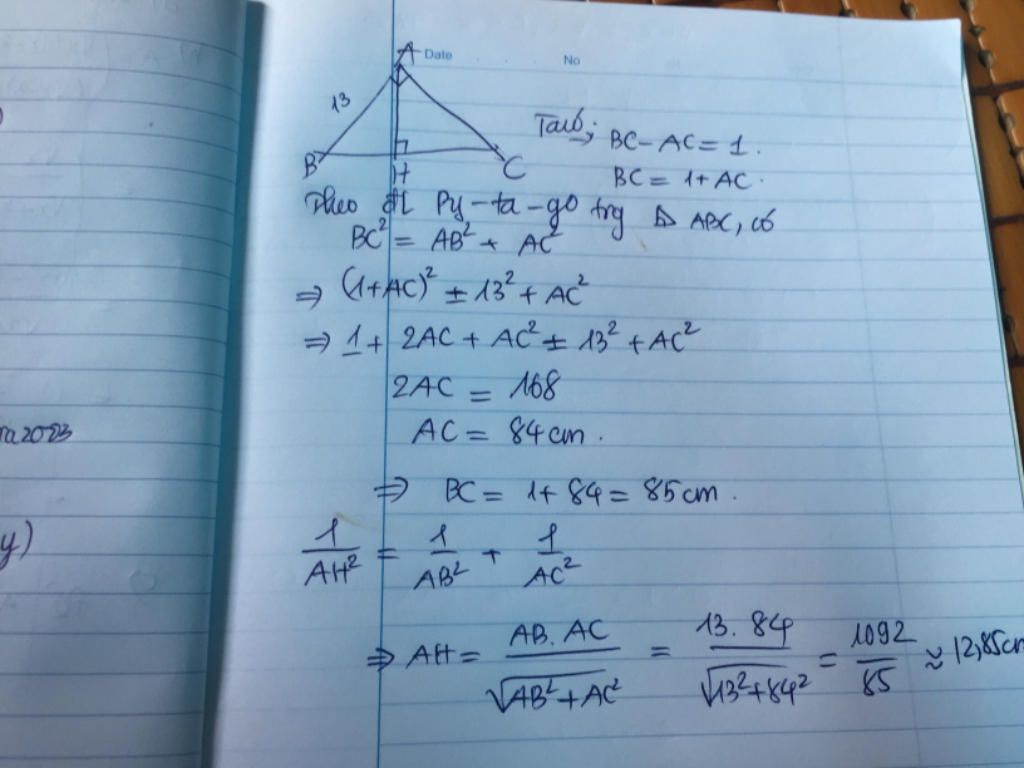 A Date No
13
B H C
Theo đl Py-ta-go trg Δ ABC, có
BC - AC = 1.
BC = 1 + AC.
BC² = AB² + AC²
⇒ (1+AC)² = 13² + AC²
⇒ 1 + 2AC + AC² = 13² + AC²
2AC = 168
AC = 84 cm.
⇒ BC = 1 + 84 = 85 cm.
1/AH² = 1/AB² + 1/AC²
⇒ AH = AB. AC/√(AB² + AC²) = 13. 84/√(13²+84²) = 1092/85 ≈ 12,85cm
2023
y)